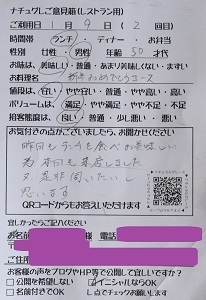 ナチュグレご意見箱(レストラン用)
ご利用日 1月 9日( 2 回目)
時間帯 ランチ・ディナー・お弁当
女性・男性 年齢 50 才代
お味は、美味しい・普通・あまり美味しくない・まずい
お料理名 新年おめでとうコース
値段は、安い・やや安い・普通・やや高い・高い
ボリュームは、満足・やや満足・普通・やや不足・不足
接客態度は、良い・普通・少し悪い・悪い
お気付きの点がございましたら、お聞かせください
昨日もランチを食べお美味しい
為 本日も来店しました
又是非伺いたいと
思います
QRコードからもお答えいただけます
宜しかったらご記入ください
お名前 様 電話
ご住所
お客様の声をブログやHP等で公開して宜しいですか?
□公開を希望しない ☑イニシャルならOK
□名前付きでOK レ点でチェックお願いします